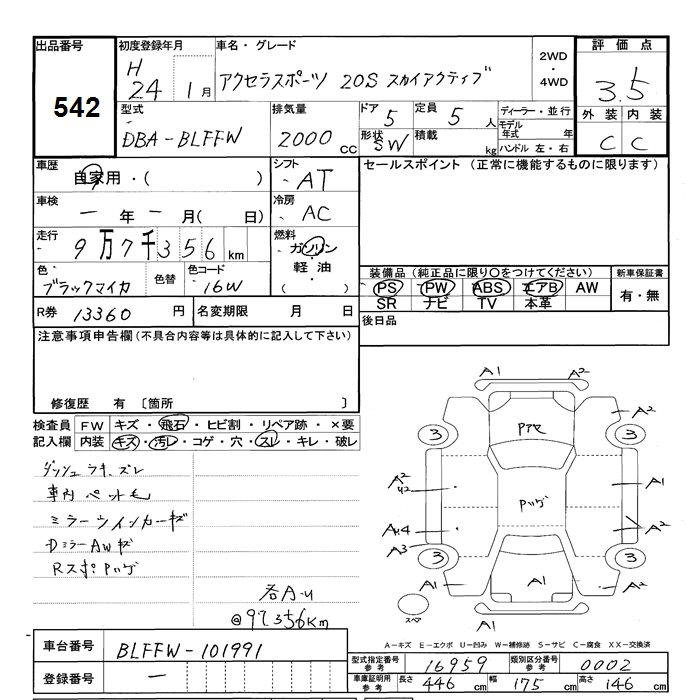 出品番号 初度登録年月 車名・グレード 2WD・4WD 評価点
542 H 24 1月 アクセラスポーツ 20S スカイアクティブ 3.5
型式 排気量 ドア 5 定員 5 人 ディーラー・並行 外装 内装
DBA-BLFFW 2000 CC 形状 SW 積載 kg モデル年式 年 ハンドル 左・右 C C
車歴 自家用・( ) シフト AT セールスポイント (正常に機能するものに限ります)
車検 - 年 - 月( 日) 冷房 AC
走行 9万7千356km 燃料 ガソリン 軽油 ( )
色 ブラックマイカ 色替 色コード 16W
装備品 (純正品に限り○をつけてください) 新車保証書
PS PW ABS エアB AW 有・無
SR ナビ TV 本革
R券 13360 円 名変期限 月 日 後日品
注意事項申告欄(不具合内容等は具体的に記入して下さい)
修復歴 有 〔箇所 〕
検査員 FW キズ・飛石・ヒビ割・リペア跡・×要
記入欄 内装 キズ・汚レ・コゲ・穴・スレ・キレ・破レ
車内 ペット毛
ミラーウインカーキズ
DミラーAWキズ
A1 A2
A2
3 3
A2 A1
A2
A3
3 3
A1 A1 A2
スペア
A1
各A-U
@97356km
A-キズ E-エクボ U-凹み W-補修跡 S-サビ C-腐食 XX-交換済
車台番号 BLFFW-101991
型式指定番号 参考 16959 類別区分番号 参考 0002
登録番号 - 車庫証明用 参考 長さ 446 cm 幅 175 cm 高さ 146 cm